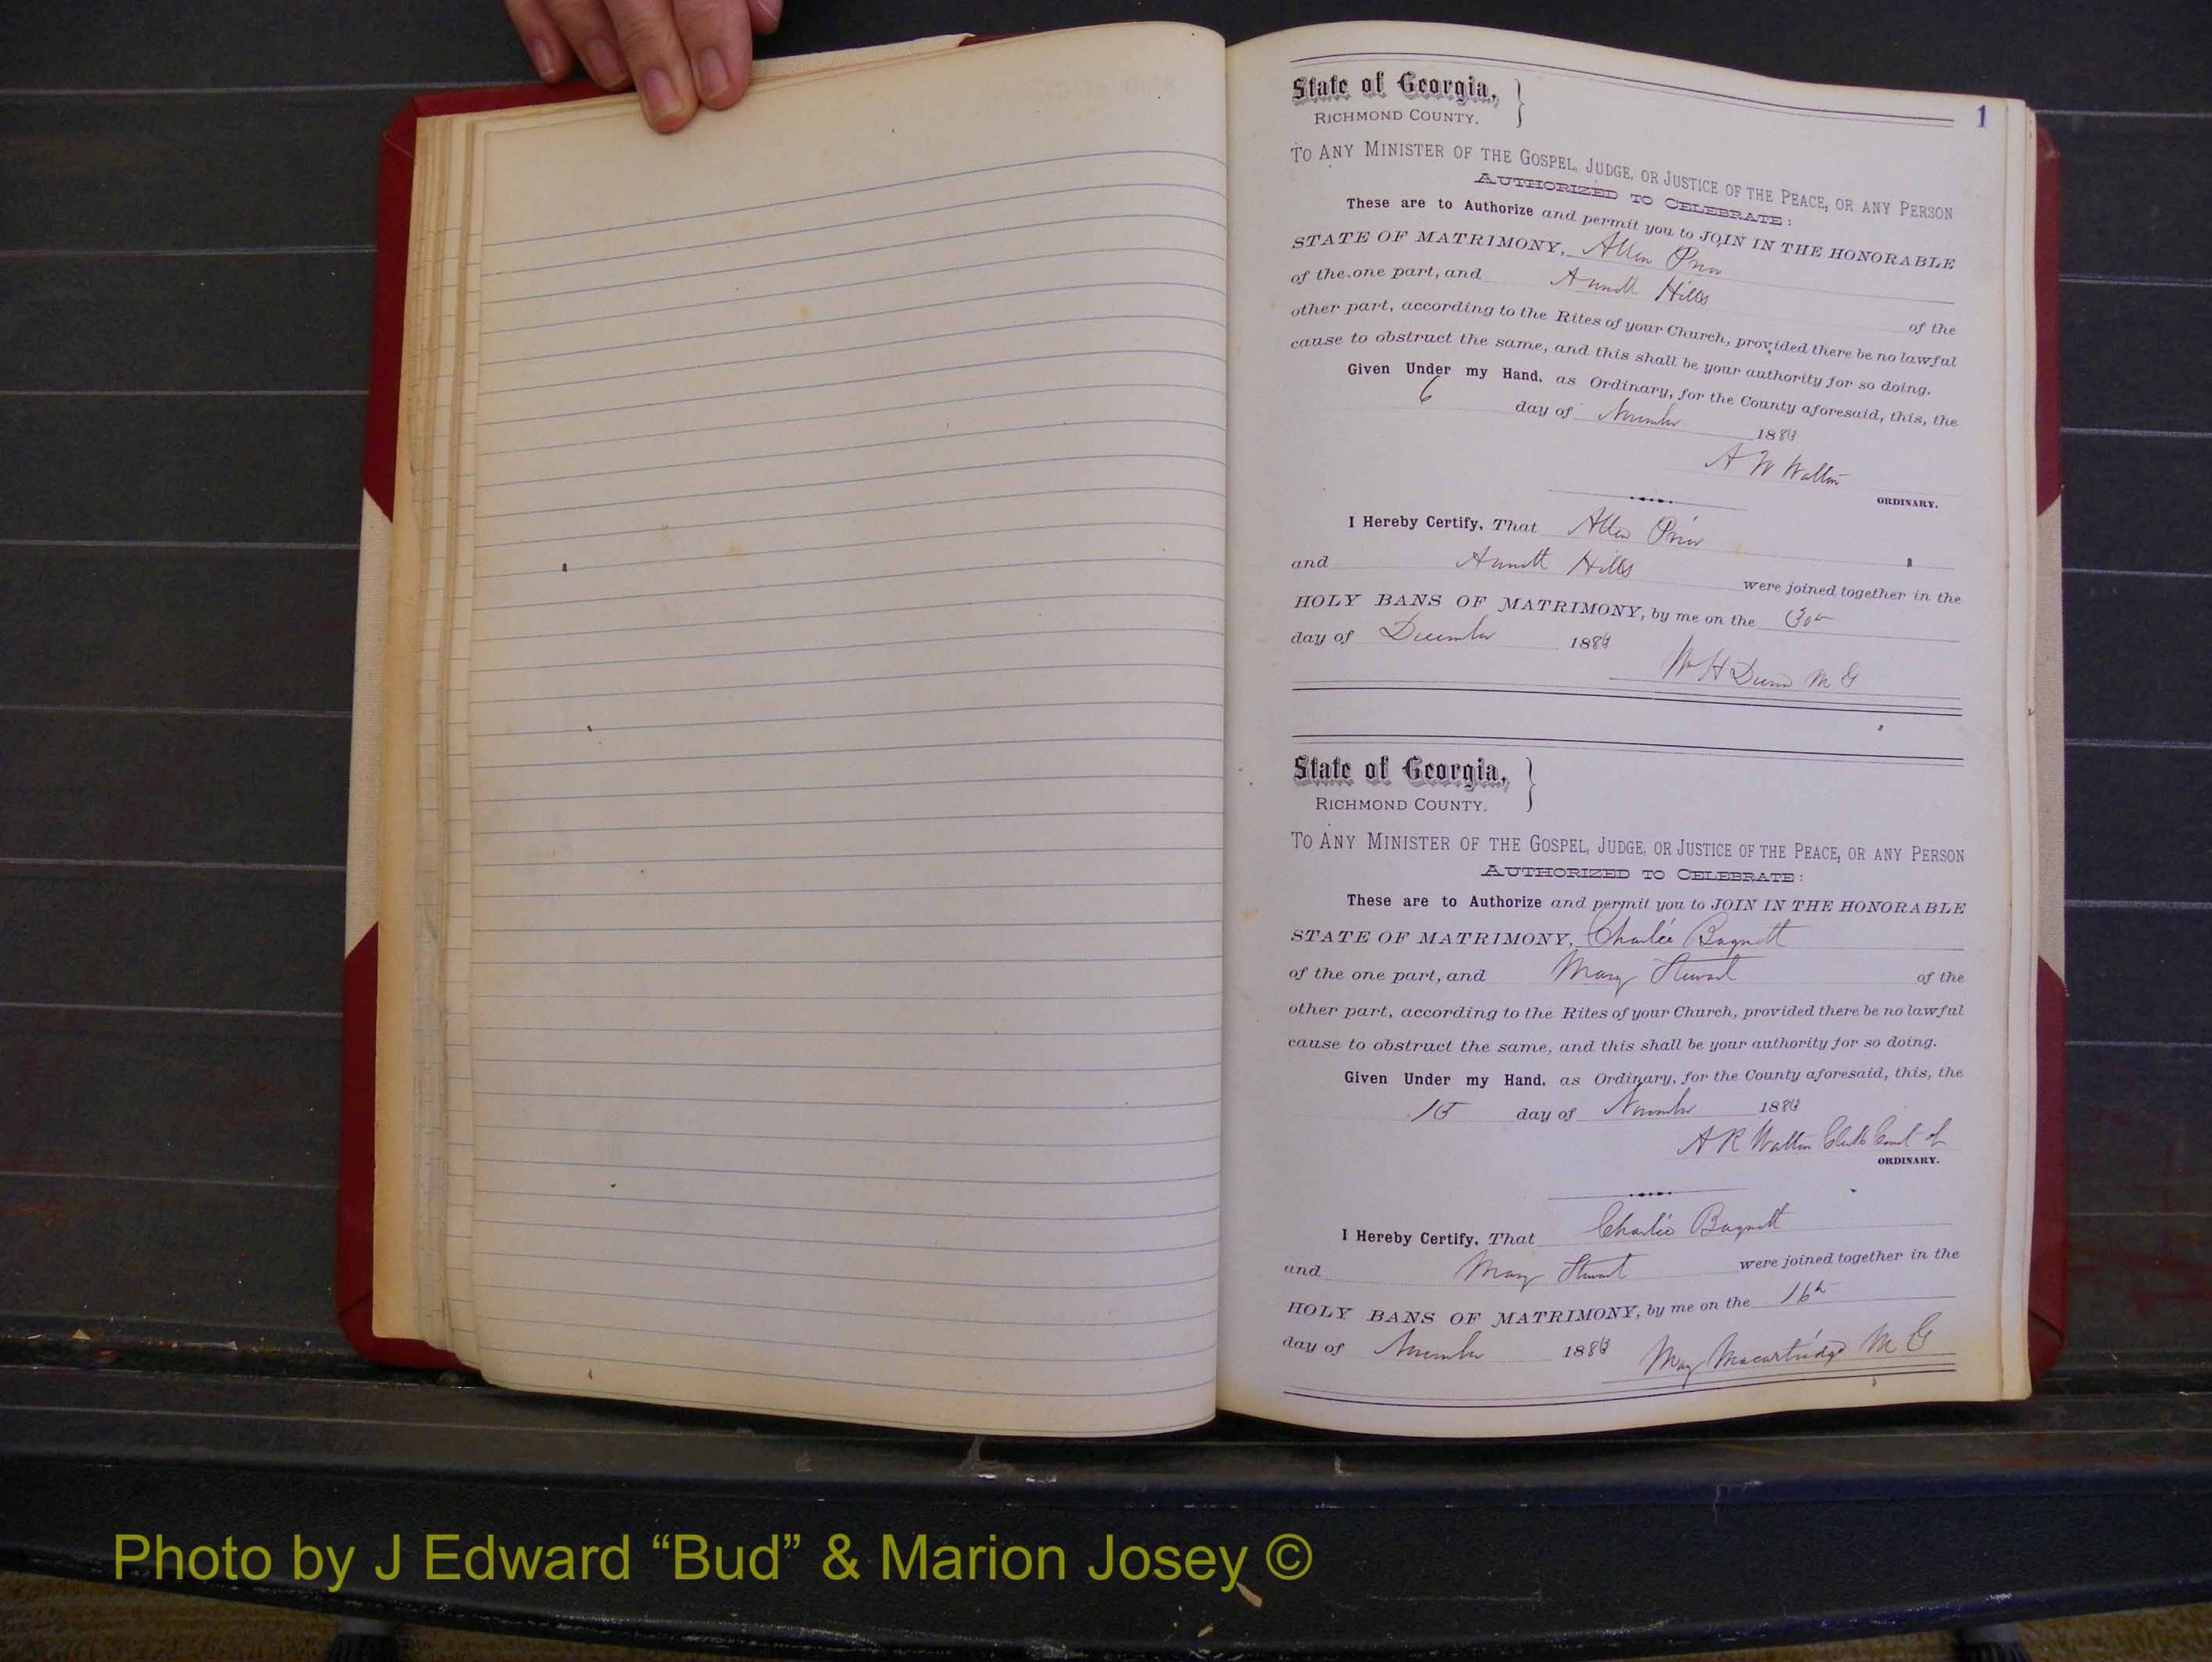 1
State of Georgia, }
RICHMOND COUNTY.
TO ANY MINISTER OF THE GOSPEL, JUDGE, OR JUSTICE OF THE PEACE, OR ANY PERSON
AUTHORIZED TO CELEBRATE:
These are to Authorize and permit you to JOIN IN THE HONORABLE
STATE OF MATRIMONY, Allen Prior
of the one part, and Hills
of the
other part, according to the Rites of your Church, provided there be no lawful
cause to obstruct the same, and this shall be your authority for so doing.
Given Under my Hand, as Ordinary, for the County aforesaid, this, the
6 day of November 1883
A W Walton
ORDINARY.
I Hereby Certify, That Allen Prior
and Hills were joined together in the
HOLY BANS OF MATRIMONY, by me on the 30th
day of December 1883
Wm H Dunn M G
State of Georgia, }
RICHMOND COUNTY.
TO ANY MINISTER OF THE GOSPEL, JUDGE, OR JUSTICE OF THE PEACE, OR ANY PERSON
AUTHORIZED TO CELEBRATE:
These are to Authorize and permit you to JOIN IN THE HONORABLE
STATE OF MATRIMONY, Charlie Bagnett
of the one part, and Mary Stewart of the
other part, according to the Rites of your Church, provided there be no lawful
cause to obstruct the same, and this shall be your authority for so doing.
Given Under my Hand, as Ordinary, for the County aforesaid, this, the
15 day of November 1883
A R Walton Clerk Court of
ORDINARY.
I Hereby Certify, That Charlie Bagnett
and Mary Stewart were joined together in the
HOLY BANS OF MATRIMONY, by me on the 16th
day of November 1883 M G
Photo by J Edward “Bud” & Marion Josey ©